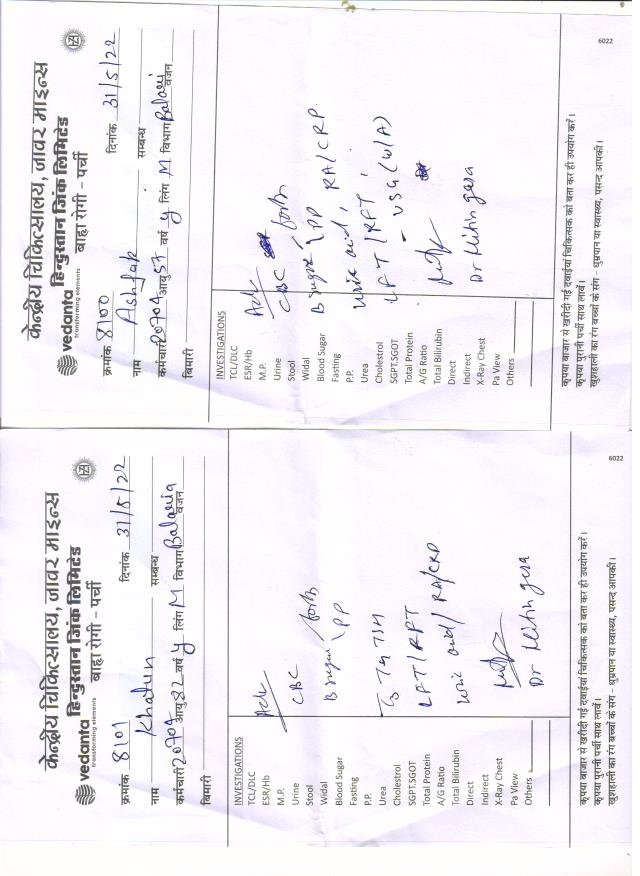 केन्द्रीय चिकित्सालय, जावर माइन्स
vedanta हिन्दुस्तान जिंक लिमिटेड
transforming elements
बाह्य रोगी – पर्ची
क्रमांक 8100 दिनांक 31/5/22
नाम Ashfak सम्बन्ध
कर्मचारी 20704 आयु 57 वर्ष y लिंग M विभाग Balaria
बिमारी वजन
INVESTIGATIONS
TCL/DLC
ESR/Hb
M.P.
Urine
Stool
Widal
Blood Sugar
Fasting
P.P.
Urea
Cholestrol
SGPT.SGOT
Total Protein
A/G Ratio
Total Bilirubin
Direct
Indirect
X-Ray Chest
Pa View
Others
Adv
CBC
B sugar PP
Uric acid, RA/CRP
LFT/RFT
– USG (W/A)
Dr Nitin gera
कृपया बाजार से खरीदी गई दवाईयां चिकित्सक को बता कर ही उपयोग करें।
कृपया पुरानी पर्ची साथ लावें।
खुशहाली का रंग बच्चों के संग – धुम्रपान या स्वास्थ्य, पसन्द आपकी।
6022
केन्द्रीय चिकित्सालय, जावर माइन्स
vedanta हिन्दुस्तान जिंक लिमिटेड
transforming elements
बाह्य रोगी – पर्ची
क्रमांक 8101 दिनांक 31/5/22
नाम Khatun सम्बन्ध
कर्मचारी 20704 आयु 52 वर्ष y लिंग M विभाग Balaria
बिमारी वजन
INVESTIGATIONS
TCL/DLC
ESR/Hb
M.P.
Urine
Stool
Widal
Blood Sugar
Fasting
P.P.
Urea
Cholestrol
SGPT.SGOT
Total Protein
A/G Ratio
Total Bilirubin
Direct
Indirect
X-Ray Chest
Pa View
Others
Adv
CBC
B sugar PP
T3 T4 TSH
LFT/RFT
Uric acid/RA/CRP
Dr Nitin gera
कृपया बाजार से खरीदी गई दवाईयां चिकित्सक को बता कर ही उपयोग करें।
कृपया पुरानी पर्ची साथ लावें।
खुशहाली का रंग बच्चों के संग – धुम्रपान या स्वास्थ्य, पसन्द आपकी।
6022